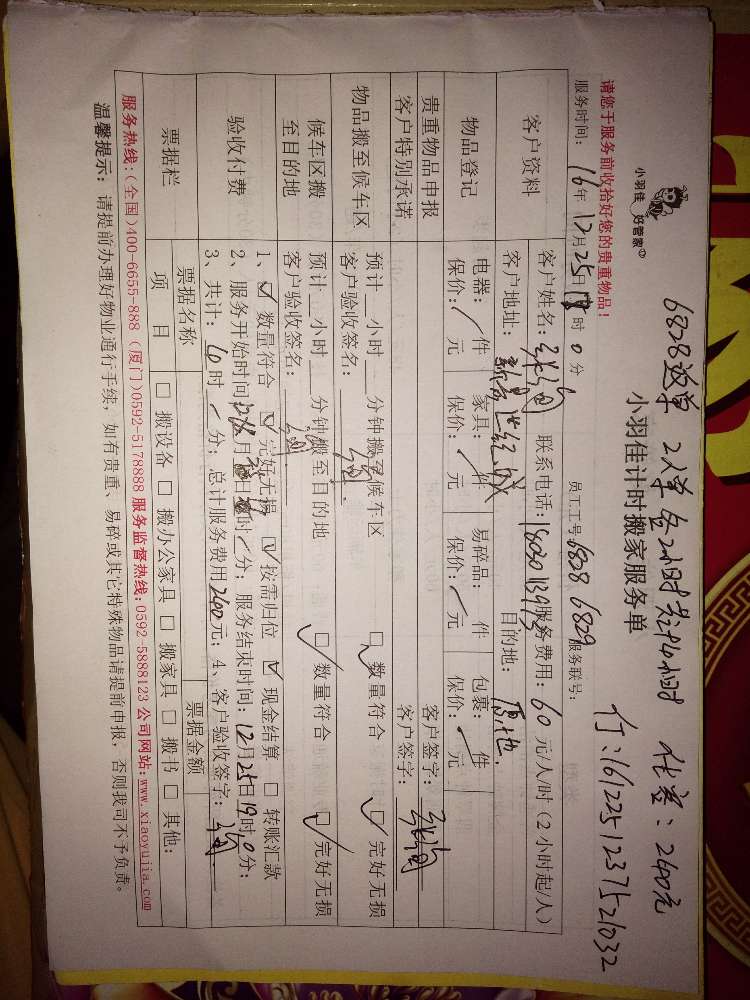 6828返单 2人单各2小时共计4小时 代客:240元
行:1612251237521032
小羽佳 好管家
小羽佳计时搬家服务单
请您于服务前收拾好您的贵重物品!
员工工号: 6828 6829 服务联号:
服务时间: 16年 12月25日 时 0分
客户资料
客户姓名: 联系电话: 服务费用: 60 元/人/时 (2小时起/人)
客户地址: 新景世纪城 目的地: 原地.
物品登记
电器: / 件 家具: / 件 易碎品: 件 包裹: / 件
保价: / 元 保价: / 元 保价: / 元 保价: / 元
贵重物品申报
客户签字:
客户特别承诺
客户签字:
物品搬至候车区
预计 小时 分钟搬至候车区 □ 数量符合 □ 完好无损
客户验收签名:
候车区搬至目的地
预计 小时 分钟搬至目的地 □ 数量符合 □ 完好无损
客户验收签名:
验收付费
1、☑ 数量符合 ☑ 完好无损 ☑ 按需归位 ☑ 现金结算 □ 转账汇款
2、服务开始时间: 月 日 时 / 分; 服务结束时间: 12月25日19时0分;
3、共计: 时 / 分; 总计服务费用 240 元; 4、客户验收签字:
票据栏
票据名称 票据金额
项目 □ 搬设备 □ 搬办公家具 □ 搬家具 □ 搬书 □ 其他:
服务热线:(全国)400-6655-888 (厦门)0592-5178888 服务监督热线:0592-5888123 公司网站:www.xiaoyujia.com
温馨提示: 请提前办理好物业通行手续, 如有贵重、易碎或其它特殊物品请提前申报, 否则我司不予负责。